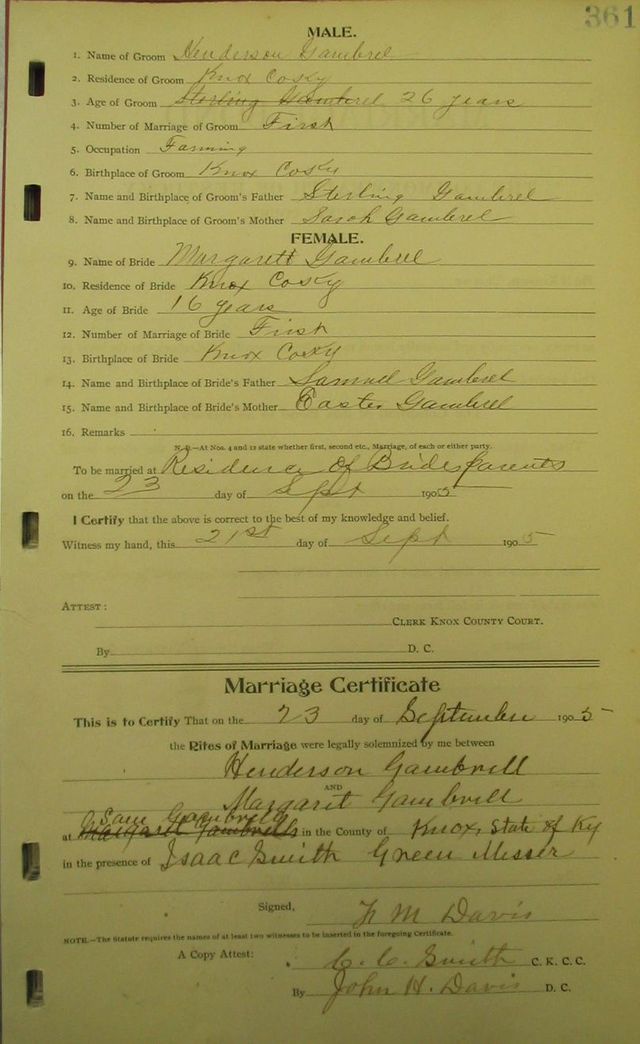 361
MALE.
1. Name of Groom Henderson Gambrel
2. Residence of Groom Knox Co Ky
3. Age of Groom Sterling Gambrel 26 years
4. Number of Marriage of Groom First
5. Occupation Farming
6. Birthplace of Groom Knox Co Ky
7. Name and Birthplace of Groom's Father Sterling Gambrel
8. Name and Birthplace of Groom's Mother Sarah Gambrel
FEMALE.
9. Name of Bride Margarett Gambrel
10. Residence of Bride Knox Co Ky
11. Age of Bride 16 years
12. Number of Marriage of Bride First
13. Birthplace of Bride Knox Co Ky
14. Name and Birthplace of Bride's Father Samuel Gambrel
15. Name and Birthplace of Bride's Mother Easter Gambrel
16. Remarks
N. B.—At Nos. 4 and 12 state whether first, second etc., Marriage, of each or either party.
To be married at Residence of Brides parents
on the 23 day of Sept 1905
I Certify that the above is correct to the best of my knowledge and belief.
Witness my hand, this 21st day of Sept 1905
ATTEST:
CLERK KNOX COUNTY COURT.
By D. C.
Marriage Certificate
This is to Certify That on the 23 day of September 1905
the Rites of Marriage were legally solemnized by me between
Henderson Gambrell
AND
Margarit Gambrell
Sam Gambrells
at Margarett Gambrells in the County of Knox, State of Ky
in the presence of Isaac Smith Green Messer
Signed, M Davis
NOTE.—The Statute requires the names of at least two witnesses to be inserted in the foregoing Certificate.
A Copy Attest: C. C. Smith C. K. C. C.
By John H. Davis D. C.